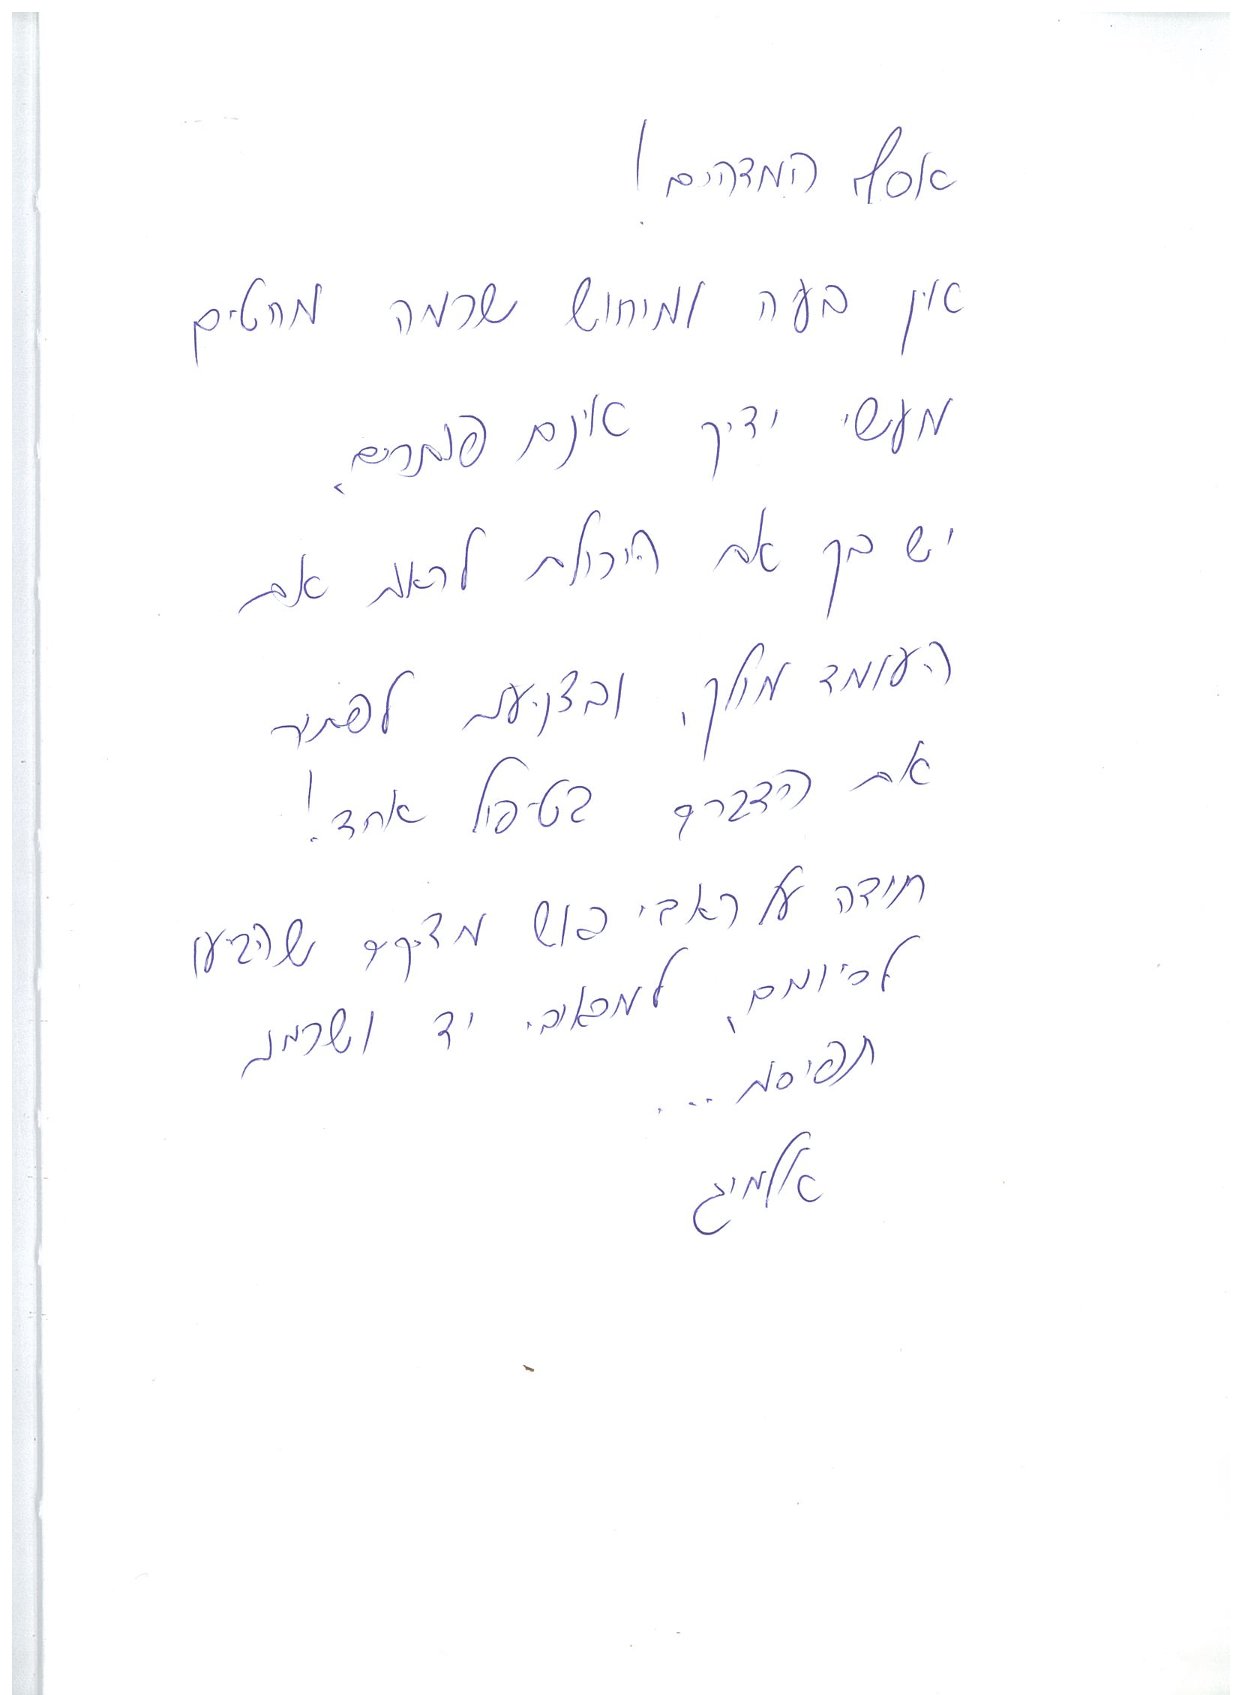 אסף המדהים!
אין בעיה ומיחוש שכמה מחטים
מעשי ידיך אינם פותרים.
יש בך את היכולת לראות את
העומד מולך, ובצניעות לפתור
את הדברים בטיפול אחד!
תודה על כאבי ראש מציקים שהגיעו
לסיומם, למכאובי יד ושכמות
תפוסות...
אלמיג